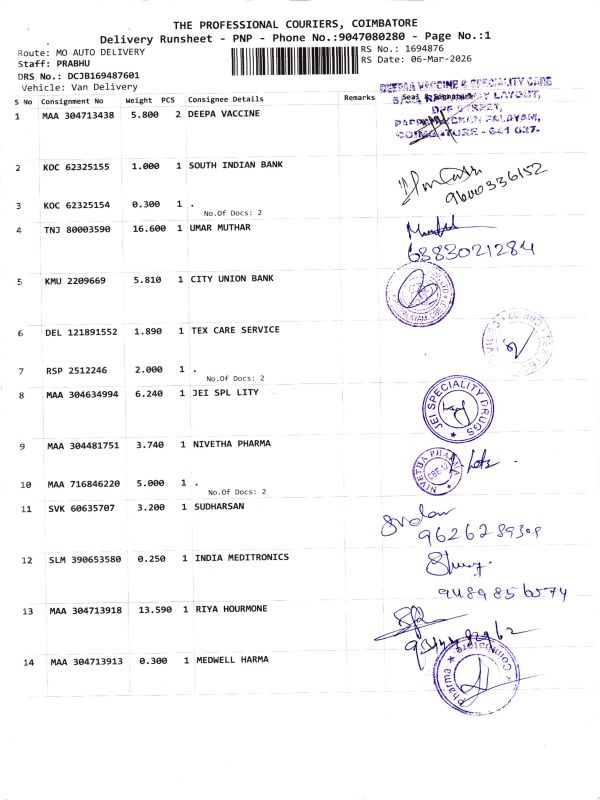 THE PROFESSIONAL COURIERS, COIMBATORE
Delivery Runsheet - PNP - Phone No.:9047080280 - Page No.:1
Route: MO AUTO DELIVERY
RS No.: 1694876
Staff: PRABHU
RS Date: 06-Mar-2026
DRS No.: DCJB169487601
Vehicle: Van Delivery
S No Consignment No Weight PCS Consignee Details Remarks Seal & Signature
DEEPAA VACCINE & SPECIALITY CARE
1 MAA 304713438 5.800 2 DEEPA VACCINE
LAYOUT,
STREET,
PALAYAM,
COIMBATORE - 641 037.
2 KOC 62325155 1.000 1 SOUTH INDIAN BANK
9600336152
3 KOC 62325154 0.300 1 .
No.Of Docs: 2
4 TNJ 80003590 16.600 1 UMAR MUTHAR
6383021284
5 KMU 2209669 5.810 1 CITY UNION BANK
6 DEL 121891552 1.890 1 TEX CARE SERVICE
7 RSP 2512246 2.000 1 .
No.Of Docs: 2
8 MAA 304634994 6.240 1 JEI SPL LITY
JEI SPECIALITY DRUGS
9 MAA 304481751 3.740 1 NIVETHA PHARMA
NIVETHA PHARMA
CBE-12
10 MAA 716846220 5.000 1 .
No.Of Docs: 2
11 SVK 60635707 3.200 1 SUDHARSAN
9626289309
12 SLM 390653580 0.250 1 INDIA MEDITRONICS
9489856574
13 MAA 304713918 13.590 1 RIYA HOURMONE
14 MAA 304713913 0.300 1 MEDWELL HARMA
Pharma
Coimbatore